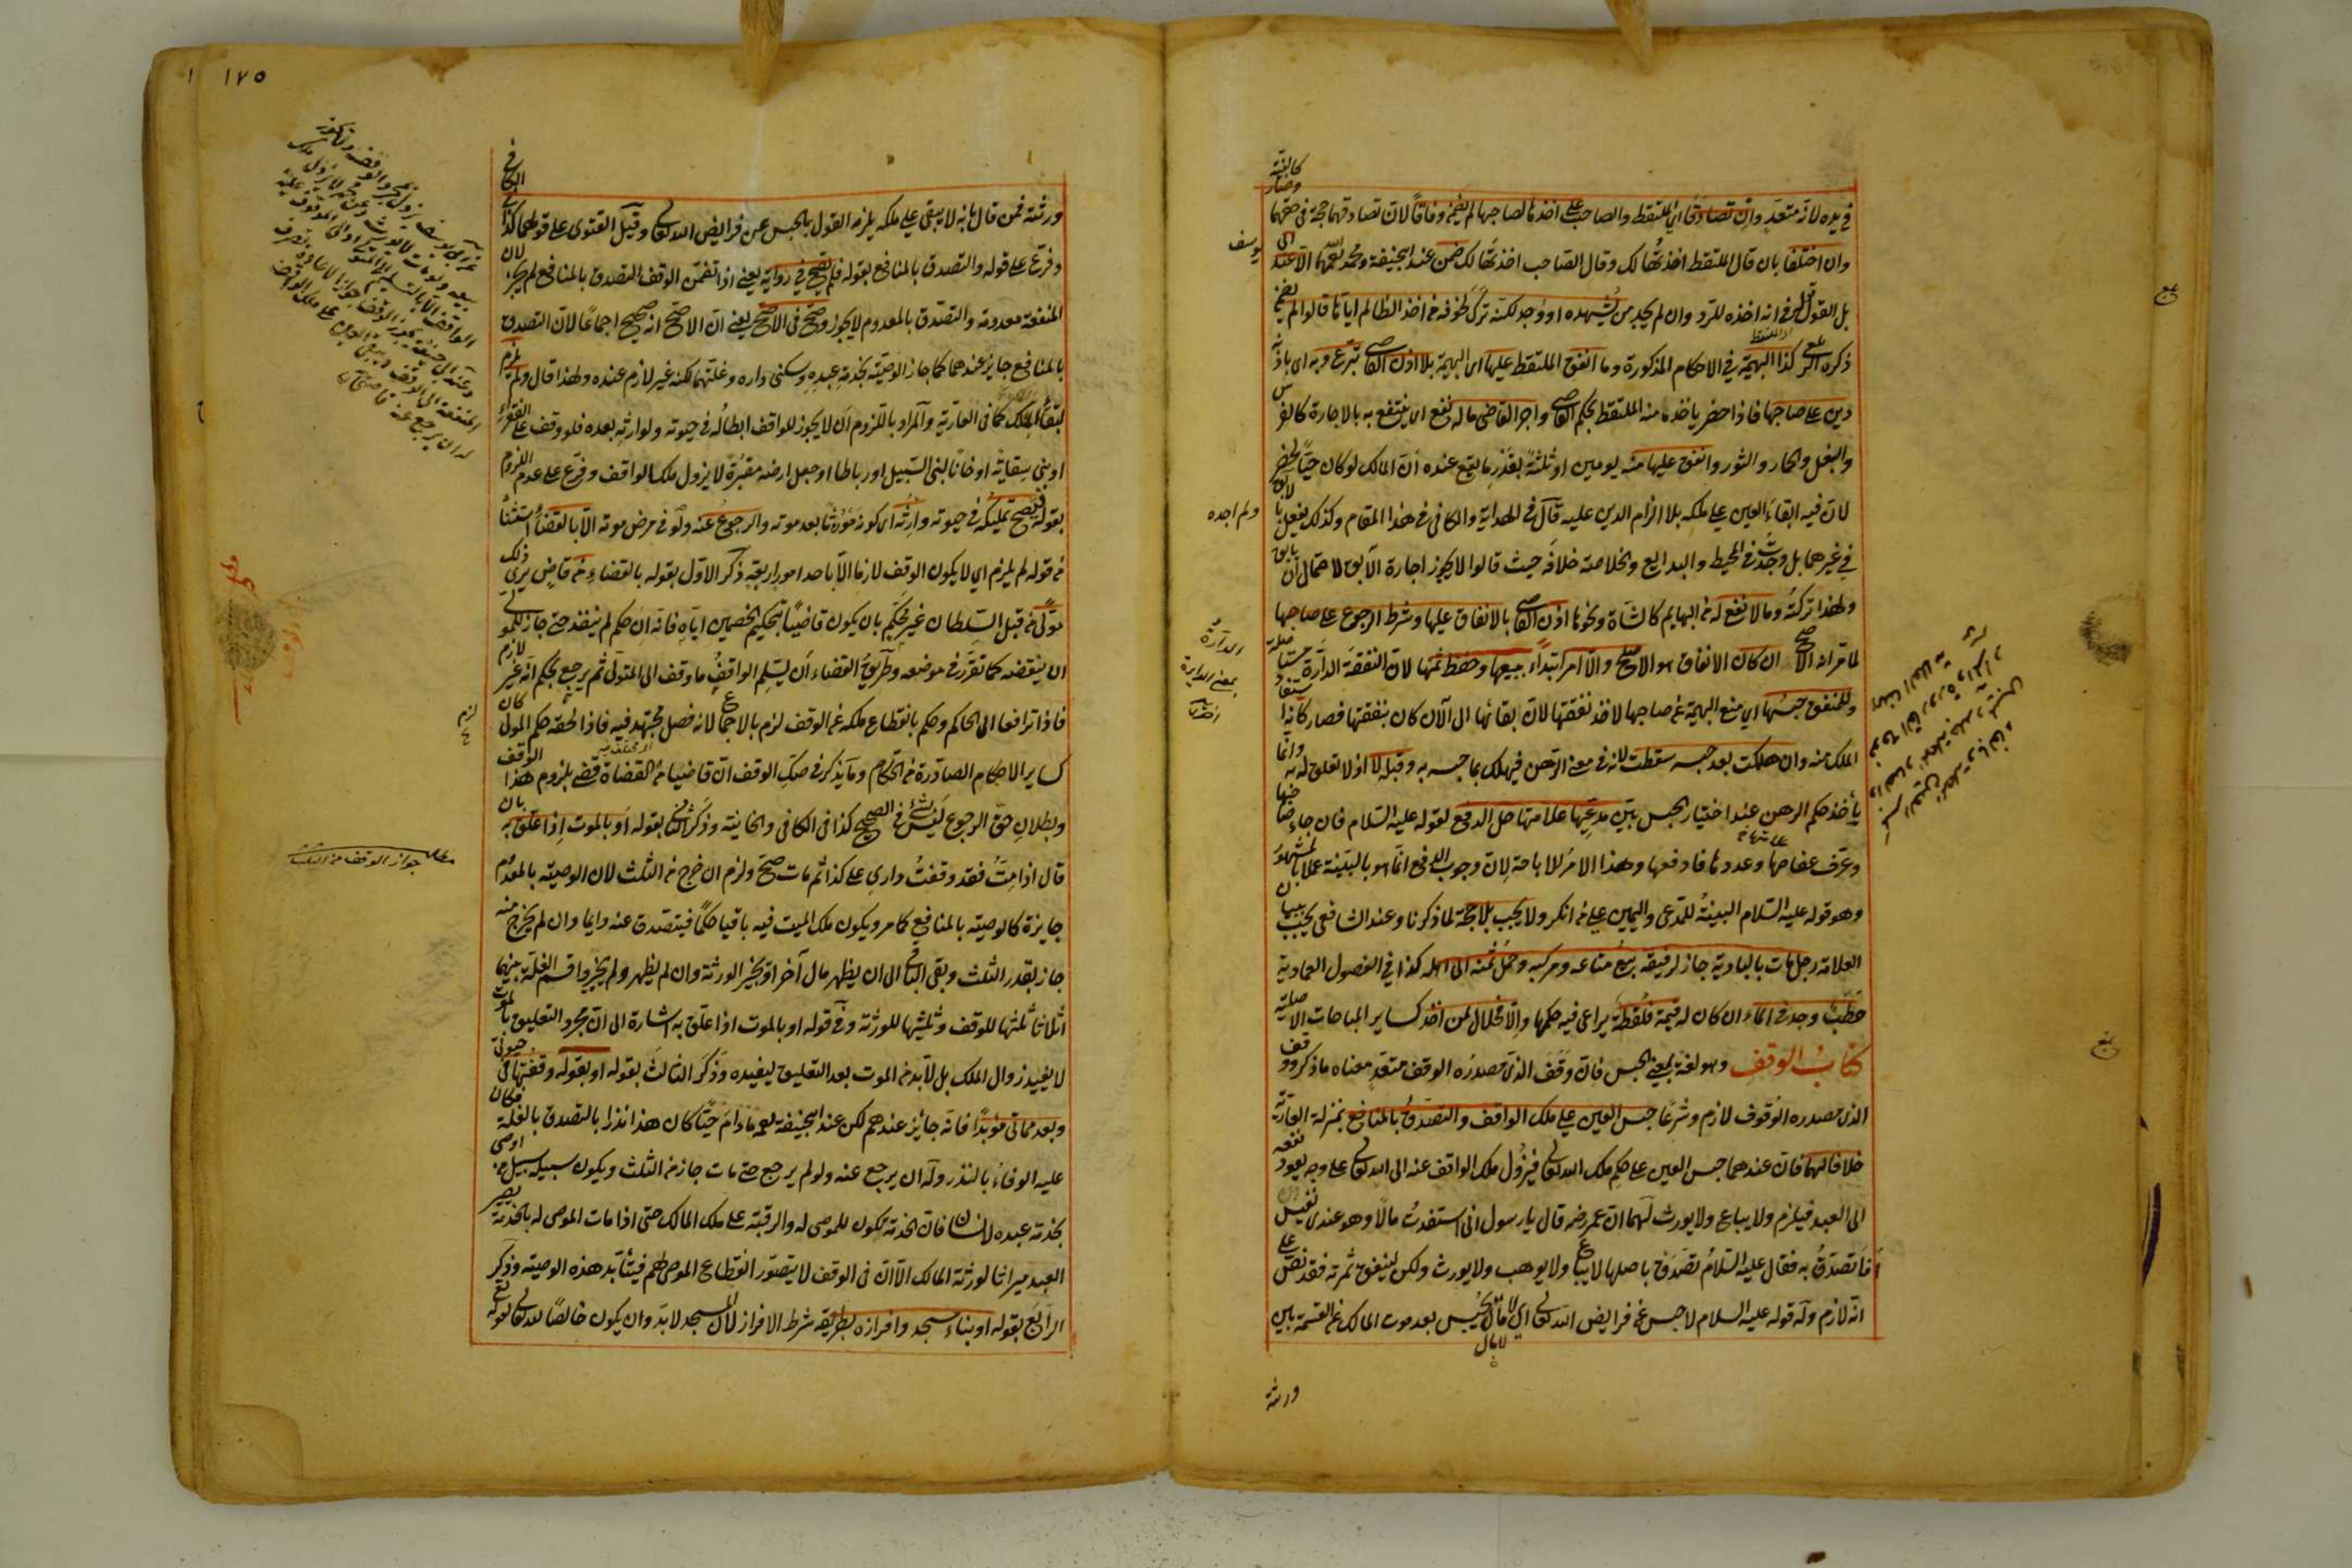 في يده لانه متعد وان تصادقا اي الملتقط والصاحب على اخذها لصاحبها لم يضمن وفاقا لان تصادقهما حجة في حقهما
وان اختلفا بان قال الملتقط اخذتها لك وقال الصاحب اخذتها لك ضمن عند ابي حنيفة ومحمد رحمهما الله لا عند ابي
يوسف
بل القول له في انه اخذه للرد وان لم يجد من يشهده او وجد لكنه تركه لخوفه من اخذ الظالم اياها قالوا لم يضمن
ذكره كذا البهيمة في الاحكام المذكورة وما انفق الملتقط عليها اي البهيمة بلا اذن القاضي تبرع وبه اي باذنه
دين على صاحبها فاذا حضر ياخذه منه الملتقط بحكم القاضي واجر القاضي ما له نفع اي ينتفع به بالاجارة كالفرس
والبغل والحمار والثور وانفق عليها منه يومين او ثلثة بقدر ما يقع عنده ان المالك لو كان حيا لحضر
لان فيه ابقاء العين على ملكه بلا الزام الدين عليه قال في الهداية والكافي في هذا المقام وكذلك يفعل بالابق
ولم اجده
في غيرهما بل وجدت في المحيط والبدايع والخلاصة خلافه حيث قالوا لا يجوز اجارة الآبق لاحتمال ان يابق
ولهذا تركته وما لا نفع له من البهايم كالشاة ونحوها اذن القاضي بالانفاق عليها وشرط الرجوع على صاحبها
لما مر انه الاصح ان كان الانفاق هو الاصلح والا امر ابتداء ببيعها وحفظ ثمنها لان النفقة الدارة مستاصلة
الدارة
بمعنى الدايرة
وللمنفق حبسها اي منع البهيمة عن صاحبها لاخذ نفقتها لان بقائها الى الآن كان بنفقتها فصار كانه استفاد
الملك منه وان هلكت بعد حبسه سقطت لانه في معنى الرهن فيهلك بما حبسه به وقبله لا اذ لا تعلق له به وانما
يأخذ حكم الرهن عند اختيار الحبس بين مدعيها علامتها حل الدفع لقوله عليه السلام فان جاء صاحبها
وعرف عفاصها وعددها فادفعها وهذا الامر للاباحة لان وجوب الدفع انما هو بالبينة عملا بالمشهور
وهو قوله عليه السلام البينة للمدعي واليمين على من انكر ولا يجب بلا حجة لما ذكرنا وعند الشافعي يجب ببيان
العلامة رجل مات بالبادية جاز لرفيقه بيع متاعه ومركبه وحمل ثمنه الى اهله كذا في الفصول العمادية
حطب وجد في الماء ان كان له قيمة فلقطة يراعى فيه حكمها والا فحلال لمن اخذ كساير المباحات الاصلية
كتاب الوقف وهو لغة بمعنى الحبس فان وقف الذي مصدره الوقف متعد معناه ما ذكر ووقف
الذي مصدره الوقوف لازم وشرعا حبس العين على ملك الواقف والتصدق بالمنافع بمنزلة العارية
خلافا لهما فان عندهما حبس العين على حكم ملك الله تعالى فيزول ملك الواقف عنه الى الله تعالى على وجه يعود نفعه
الى العبد فيلزم ولا يباع ولا يورث لهما ان عمر رضه قال يا رسول اني استفدت مالا وهو عندي نفيس
أفأتصدق به فقال عليه السلام تصدق باصلها لا يباع ولا يوهب ولا يورث ولكن لينفق ثمرته فقد نص على
انه لازم وله قوله عليه السلام لا حبس عن فرايض الله تعالى اي لا مال يحبس بعد موت المالك عن القسمة بين
ورثته

١٧٥
ورثته فمن قال بانه لا يبقى على ملكه يلزمه القول بالحبس عن فرايض الله تعالى وقيل الفتوى على قولهما كذا في الكافي
وفرع على قوله والتصدق بالمنافع بقوله فلم يصح في رواية يعني اذا تضمن الوقف التصدق بالمنافع لم يجز لان
المنفعة معدومة والتصدق بالمعدوم لا يجوز وصح في الاصح يعني ان الاصح انه صحيح اجماعا لان التصدق
بالمنافع جايز عندهما كما جاز الوصية بخدمة عبده وسكنى داره وغلتهما لكنه غير لازم عنده ولهذا قال ولم يلزم
لبقاء الملك كما في العارية والمراد باللزوم ان لا يجوز للواقف ابطاله في حيوته ولوارثه بعده فلو وقف على الفقراء
او بنى سقاية او خانا لبني السبيل او رباطا او جعل ارضه مقبرة لا يزول ملك الواقف وفرع على عدم اللزوم
بقوله فيصح تمليكه في حيوته وارثه اي كونه موروثا بعد موته والرجوع عنه ولو في مرض موته الا بالقضاء استثناء
من قوله لم يلزم اي لا يكون الوقف لازما الا باحد امور اربعة ذكر الاول بقوله بالقضاء من قاض يرى ذلك
مولى من قبل السلطان غير محكم بان يكون قاضيا بتحكيم الخصمين اياه فانه ان حكم لم ينفذ حتى جاز للمولى
ان ينقضه كما تقرر في موضعه وطريق القضاء ان يسلم الواقف ما وقف الى المتولي ثم يرجع بحكم انه غير لازم
فاذا ترافعا الى الحاكم وحكم بانقطاع ملكه عن الوقف لزم بالاجماع لانه فصل مجتهد فيه فاذا لحقه حكم المولى كان
كساير الاحكام الصادرة من الحكام وما يذكر في صك الوقف ان قاضيا من القضاة قضى بلزوم هذا الوقف
وبطلان حق الرجوع ليس بشئ في الصحيح كذا في الكافي والخانية وذكر الثاني بقوله او بالموت اذا علق به بان
مطلب جواز الوقف من الثلث
قال اذا مت فقد وقفت داري على كذا ثم مات صح ولزم ان خرج من الثلث لان الوصية بالمعدوم
جايزة كالوصية بالمنافع كما مر ويكون ملك الميت فيه باقيا حكما فيتصدق عنه دايما وان لم يخرج منه
جاز بقدر الثلث وبقي الباقي الى ان يظهر مال آخر او يجيز الورثة وان لم يظهر ولم يجيزوا قسم الغلة بينهما
اثلاثا ثلثها للوقف وثلثيها للورثة وفي قوله او بالموت اذا علق به اشارة الى ان مجرد التعليق بالموت
لا يفيد زوال الملك بل لا بد من الموت بعد التعليق ليفيده وذكر الثالث بقوله او بقوله وقفتها في حيوتي
وبعد مماتي مؤبدا فانه جائز عندهم لكن عند ابي حنيفة رحمه ما دام حيا كان هذا نذرا بالتصدق بالغلة فكان
عليه الوفاء بالنذر وله ان يرجع عنه ولو لم يرجع حتى مات جاز من الثلث ويكون سبيله سبيل من اوصى
بخدمة عبده لانسان فان الخدمة تكون للموصى له والرقبة على ملك المالك حتى اذا مات الموصى له بالخدمة يصير
العبد ميراثا لورثة المالك الا ان في الوقف لا يتصور انقطاع الموصى لهم فيتأبد هذه الوصية وذكر
الرابع بقوله او بناء مسجد وافرازه بطريقه شرط الافراز لان المسجد لا بد وان يكون خالصا لله تعالى لقوله